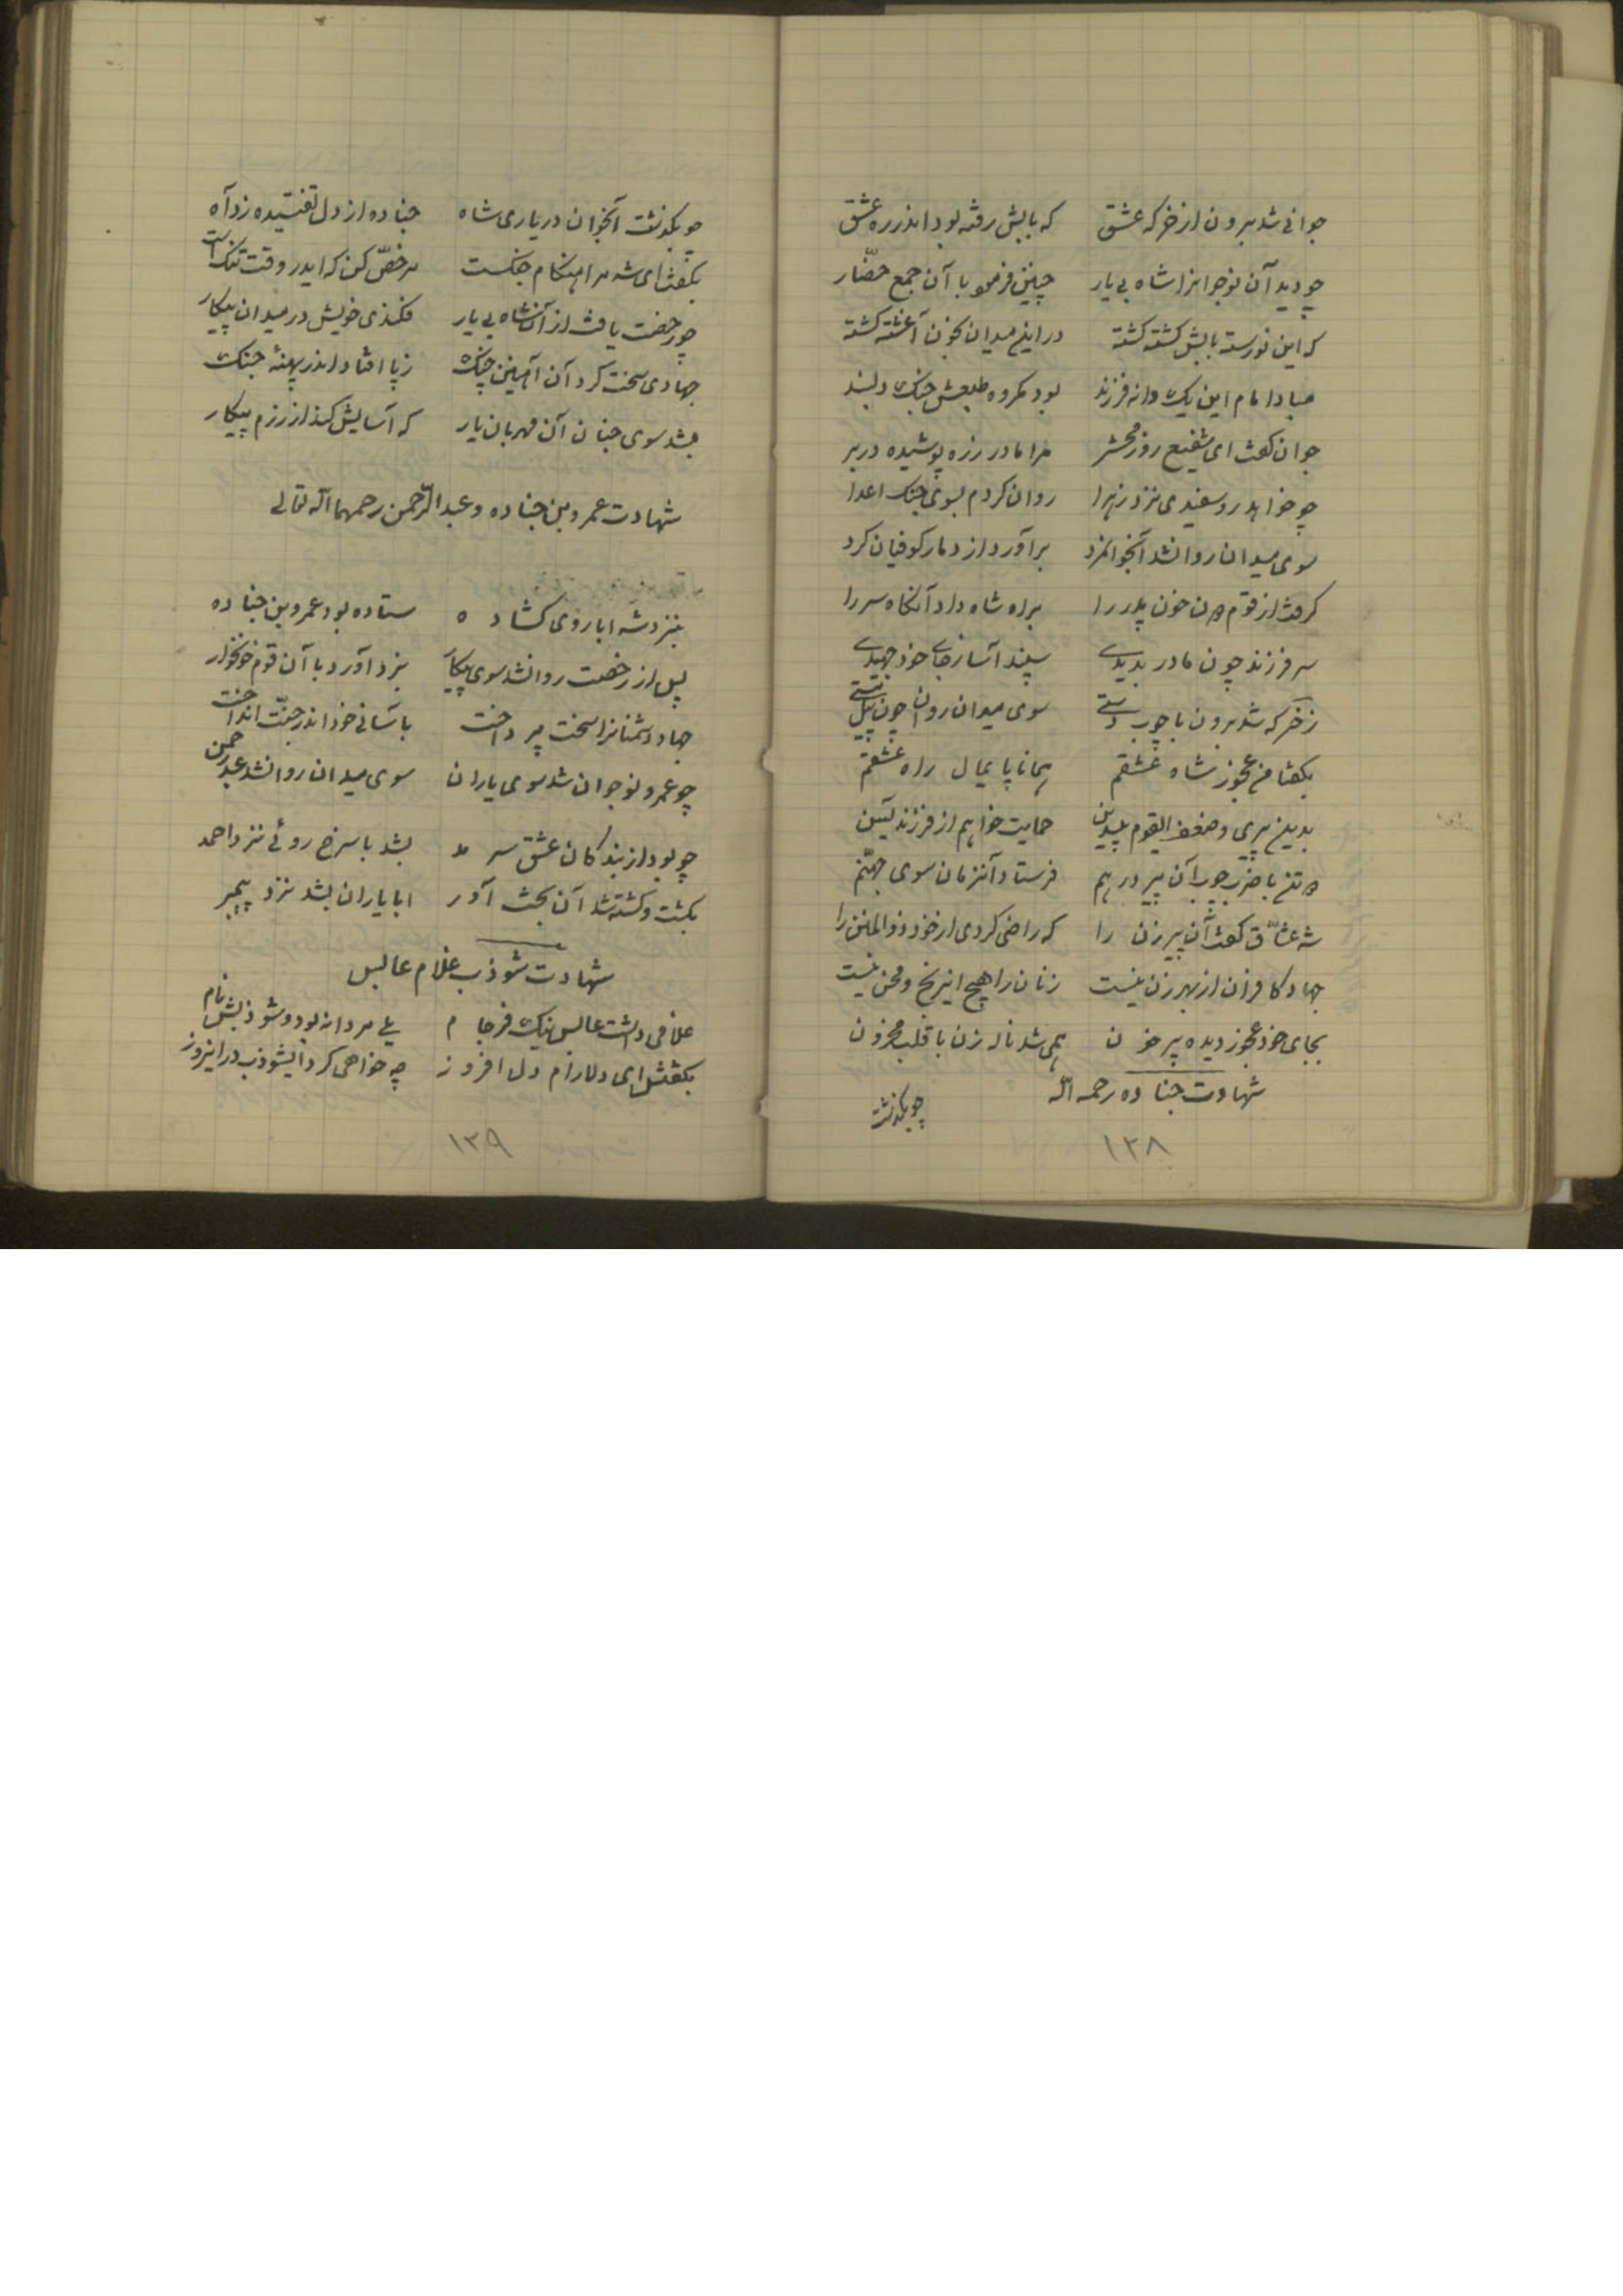 جوانی شد برون از خرکه عشق که بابش رفته بود اندر ره عشق
چو دید آن نوجوانرا شاه بی یار چنین فرمود با آن جمع حضّار
که این نورسته بابش کشته کشته در این میدان بخون آغشته کشته
مبادا مام این یک دانه فرزند بود مکروه طبعش جنک دلبند
جوان کفت ای شفیع روز محشر مرا مادر زره پوشیده در بر
چو خواهد روسفیدی نزد زهرا روان کردم بسوی جنک اعدا
سوی میدان روانشد آنجوانمرد برآورد از دمار کوفیان کرد
کرفت از قوم دون خون پدر را براه شاه داد آنکاه سر را
سر فرزند چون مادر بدیدی سپند آسا ز جای خود جهیدی
ز خرکه شد برون با چوب دستی سوی میدان روان چون پیل مستی
بکفتا من عجوز شاه عشقم همانا پایمال راه عشقم
بدین پیری و ضعف القوم بیدین حمایت خواهم از فرزند یسین
دو تن با ضرب چوب آن پیر در هم فرستاد آنزمان سوی جهنّم
شه عشّاق کفت آن پیر زن را که راضی کردی از خود ذوالمنن را
جهاد کافران از بهر زن نیست زنان را هیچ این رنج و محن نیست
بجای خود عجوز دیده پر خون همی شد ناله زن با قلب محزون
شهادت جناده رحمه الله
چو بکذشت
۱۳۸
چو بکذشت آنجوان در یاری شاه جناده از دل تفتیده زد آه
بکفت ای شه مرا هنکام جنکست مرخصّ کن که ایدر وقت تنک است
چو رخصت یافت از آنشاه بی یار فکندی خویش در میدان پیکار
جهادی سخت کرد آن آهنین چنک ز پا افتاد اندر پهنهٔ جنک
بشد سوی جنان آن مهربان یار که آسایش کند از رزم پیکار
شهادت عمرو بن جناده و عبدالرّحمن رحمهما الله تعالی
بنزد شه ابا روی کشاده ستاده بود عمرو بن جناده
پس از رخصت روانشد سوی پیکار نبرد آورد با آن قوم خونخوار
جهاد دشمنانرا سخت پرداخت بآسانی خود اندر جنّت انداخت
چو عمرو نوجوان شد سوی یاران سوی میدان روانشد عبدرحمن
چو بود از بندکان عشق سرمد بشد با سرخ روئی نزد احمد
بکشت و کشته شد آن بخت آور ابا یاران بشد نزد پیمبر
شهادت شوذب غلام عابس
غلامی داشت عابس نیک فرجام یلی مردانه بود و شوذبش نام
بکفتش ای دلارام دل افروز چه خواهی کرد ایشوذب در اینروز
۱۳۹